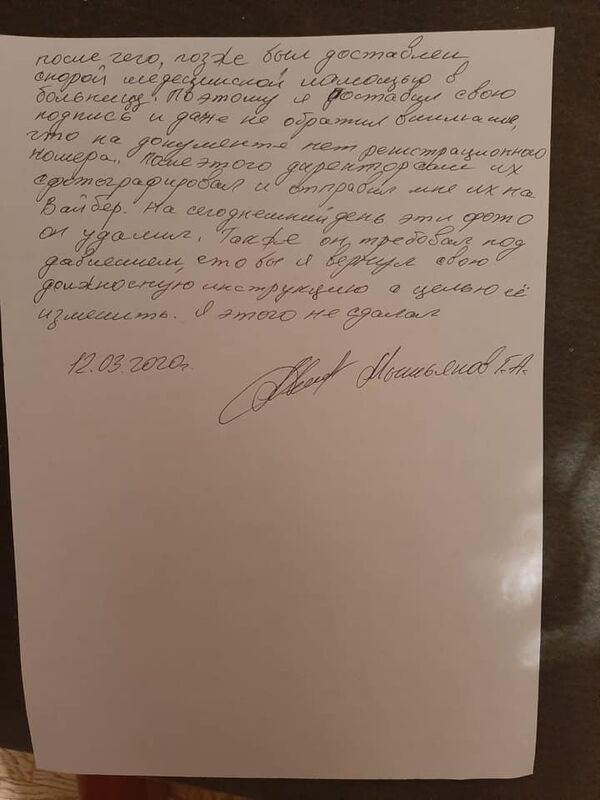 после чего, позже был доставлен
скорой медецинской памощью в
больницу. Поэтому я поставил свою
подпись и даже не обратил внимание,
что на документе нет регистрационного
номера. После этого директор сам их
сфотографировал и отправил мне их на
Вайбер. На сегоднешний день эти фото
он удалил. Также он требовал под
давлением, что бы я вернул свою
должносную инструкцию с целью её
изменить. Я этого не сделал
12.03.2020г. Мышьянов Г.А.